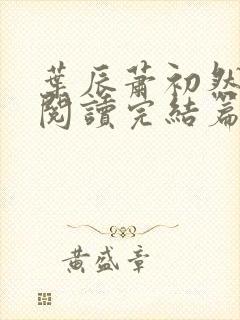 葉辰蕭初然
閱讀完結篇
黃盛章